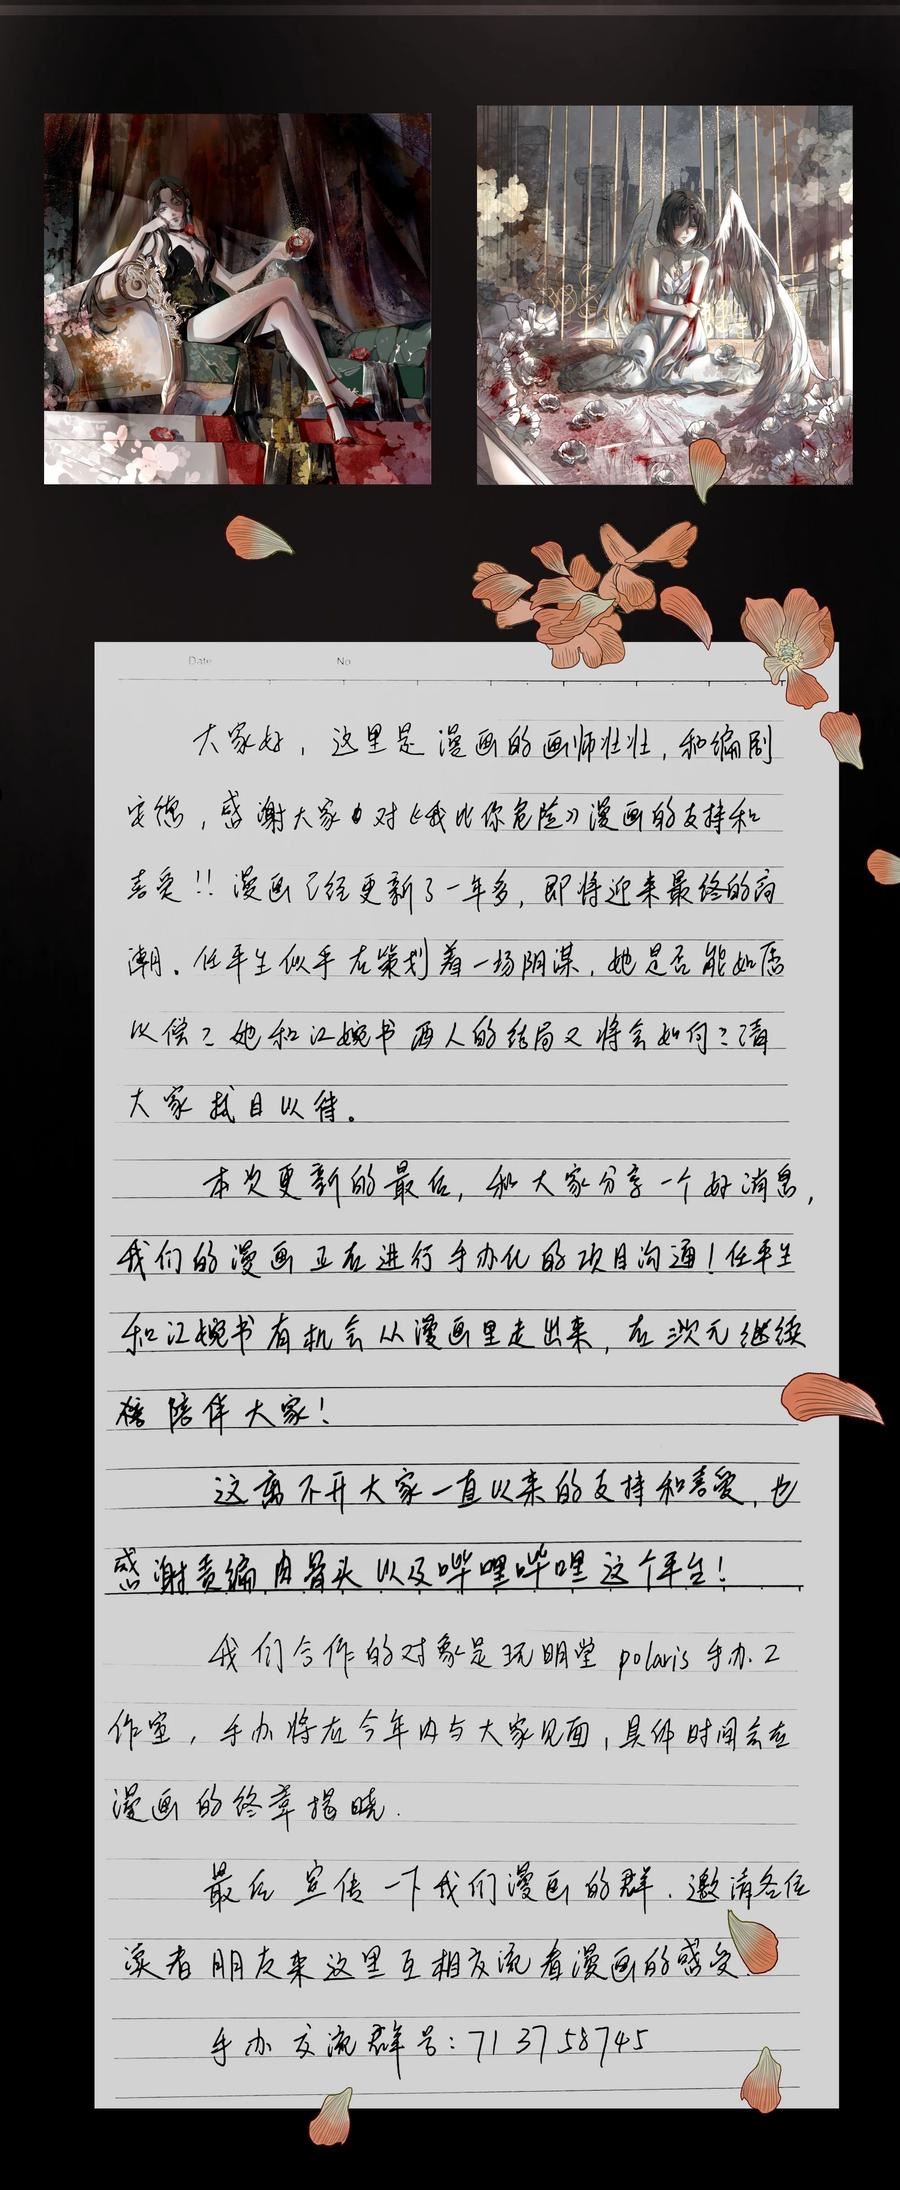 Date
No
大家好，这里是漫画的画师壮壮，和编剧
安德，感谢大家对《我比你危险》漫画的支持和
喜爱!!漫画已经更新了一年多，即将迎来最终的高
潮。任平生似乎在策划着一场阴谋，她是否能如愿
以偿？她和江婉书两人的结局又将会如何？请
大家拭目以待。
本次更新的最后，和大家分享一个好消息，
我们的漫画正在进行手办化的项目沟通！任平生
和江婉书有机会从漫画里走出来，在三次元继续
陪伴大家！
这离不开大家一直以来的支持和喜爱，也
感谢责编肉骨头以及哔哩哔哩这个平台！
我们合作的对象是玩明堂polaris手办工
作室，手办将在今年内与大家见面，具体时间会在
漫画的终章揭晓.
最后宣传一下我们漫画的群.邀请各位
读者朋友来这里互相交流看漫画的感受.
手办交流群号：713758745